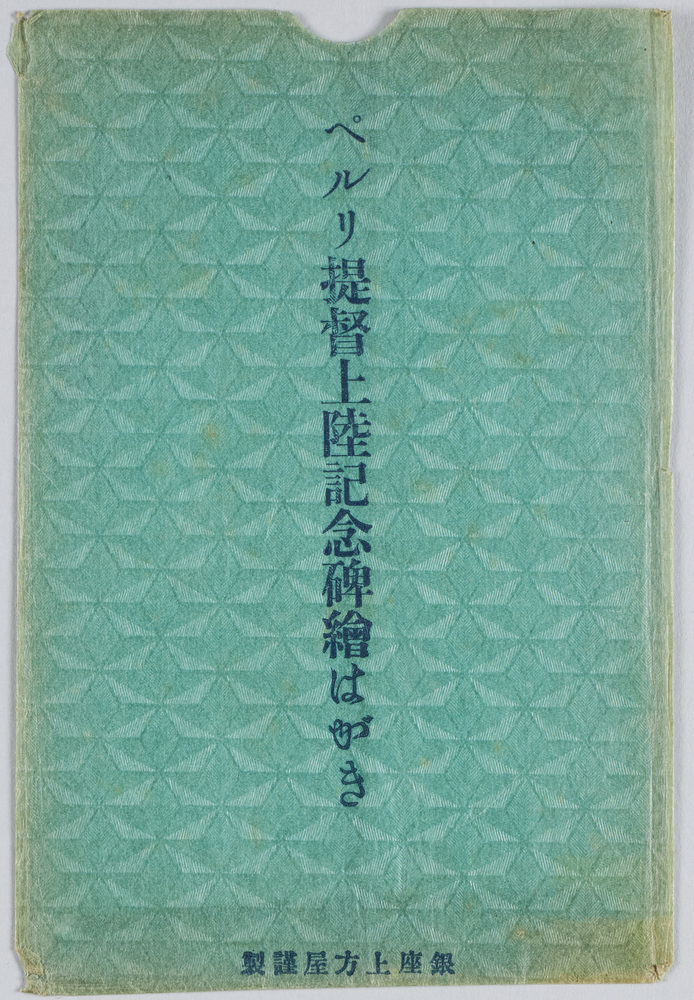 ペルリ提督上陸記念碑繪はがき
銀座上方屋謹製